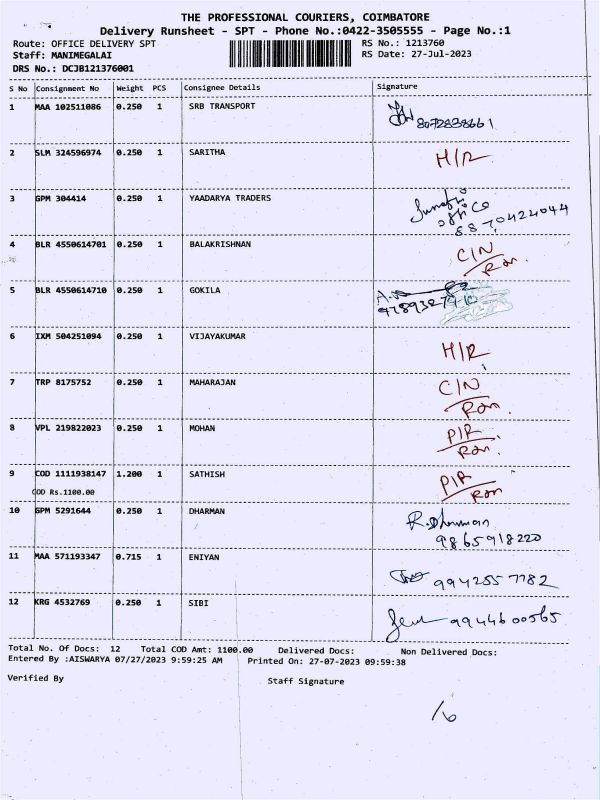 THE PROFESSIONAL COURIERS, COIMBATORE
Delivery Runsheet - SPT - Phone No.:0422-3505555 - Page No.:1
Route: OFFICE DELIVERY SPT RS No.: 1213760
Staff: MANIMEGALAI RS Date: 27-Jul-2023
DRS No.: DCJB121376001
S No Consignment No Weight PCS Consignee Details Signature
1 MAA 102511086 0.250 1 SRB TRANSPORT
8072838661
2 SLM 324596974 0.250 1 SARITHA H/R
3 GPM 304414 0.250 1 YAADARYA TRADERS
8870424044
4 BLR 4550614701 0.250 1 BALAKRISHNAN C/N
5 BLR 4550614710 0.250 1 GOKILA
6 IXM 504251094 0.250 1 VIJAYAKUMAR H/R
7 TRP 8175752 0.250 1 MAHARAJAN C/N
8 VPL 219822023 0.250 1 MOHAN P/R
9 COD 1111938147 1.200 1 SATHISH P/R
COD Rs.1100.00
10 GPM 5291644 0.250 1 DHARMAN R.Dharman
9865918220
11 MAA 571193347 0.715 1 ENIYAN 9942557782
12 KRG 4532769 0.250 1 SIBI 9944600565
Total No. Of Docs: 12 Total COD Amt: 1100.00 Delivered Docs: Non Delivered Docs:
Entered By :AISWARYA 07/27/2023 9:59:25 AM Printed On: 27-07-2023 09:59:38
Verified By Staff Signature